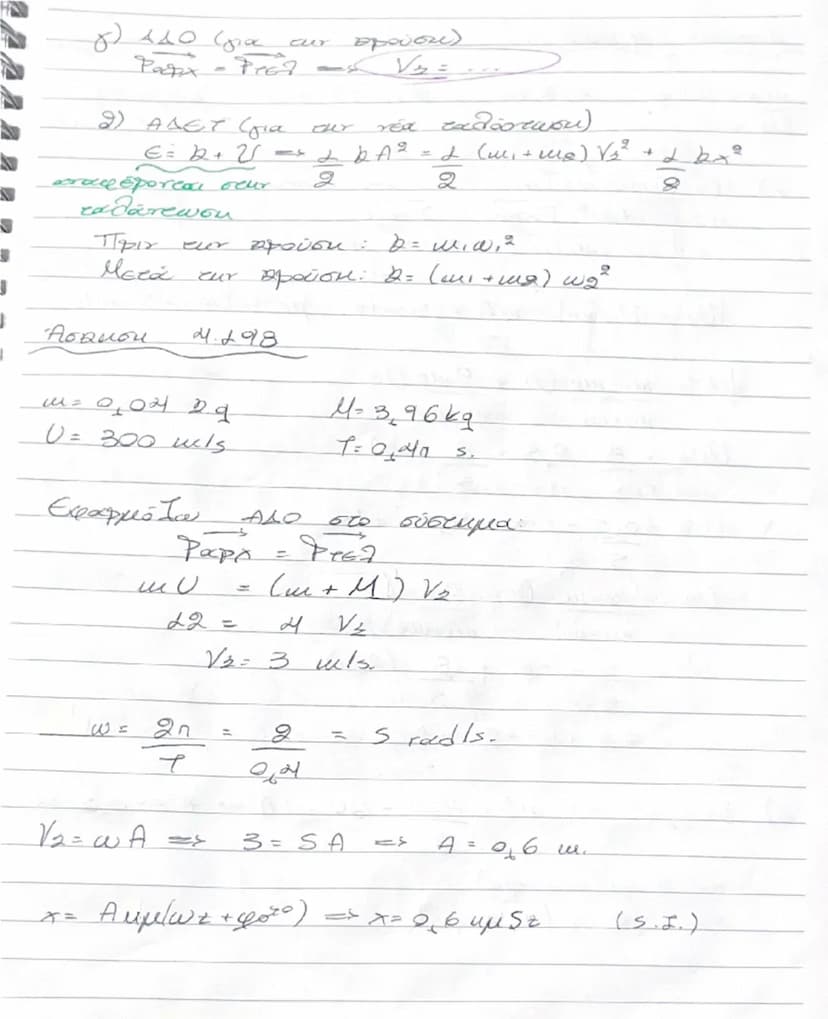 γ) ΑΔΟ (για την κρούση)
Pαρχ = Pτελ => Vκ = ...
δ) ΑΔΕΤ (για την νέα ταλάντωση)
Ε = k + U => 1/2 kA² = 1/2 (m₁ + m₂) Vκ² + 1/2 kx²
αναφέρονται στην
ταλάντωση
Πριν την κρούση: k = m₁ω₁²
Μετά την κρούση: k = (m₁ + m₂) ω₂²
Άσκηση 4.198
m = 0,04 kg M = 3,96 kg
U = 300 m/s T = 0,4π s.
Εφαρμόζω ΑΔΟ στο σύστημα:
Pαρχ = Pτελ
mU = (m + M) Vκ
12 = 4 Vκ
Vκ = 3 m/s.
ω = 2π/T = 2/0,4 = 5 rad/s.
Vκ = ωA => 3 = 5A => A = 0,6 m.
x = Aημ(ωt + φο⁼⁰) => x = 0,6 ημ5t (S.I.)